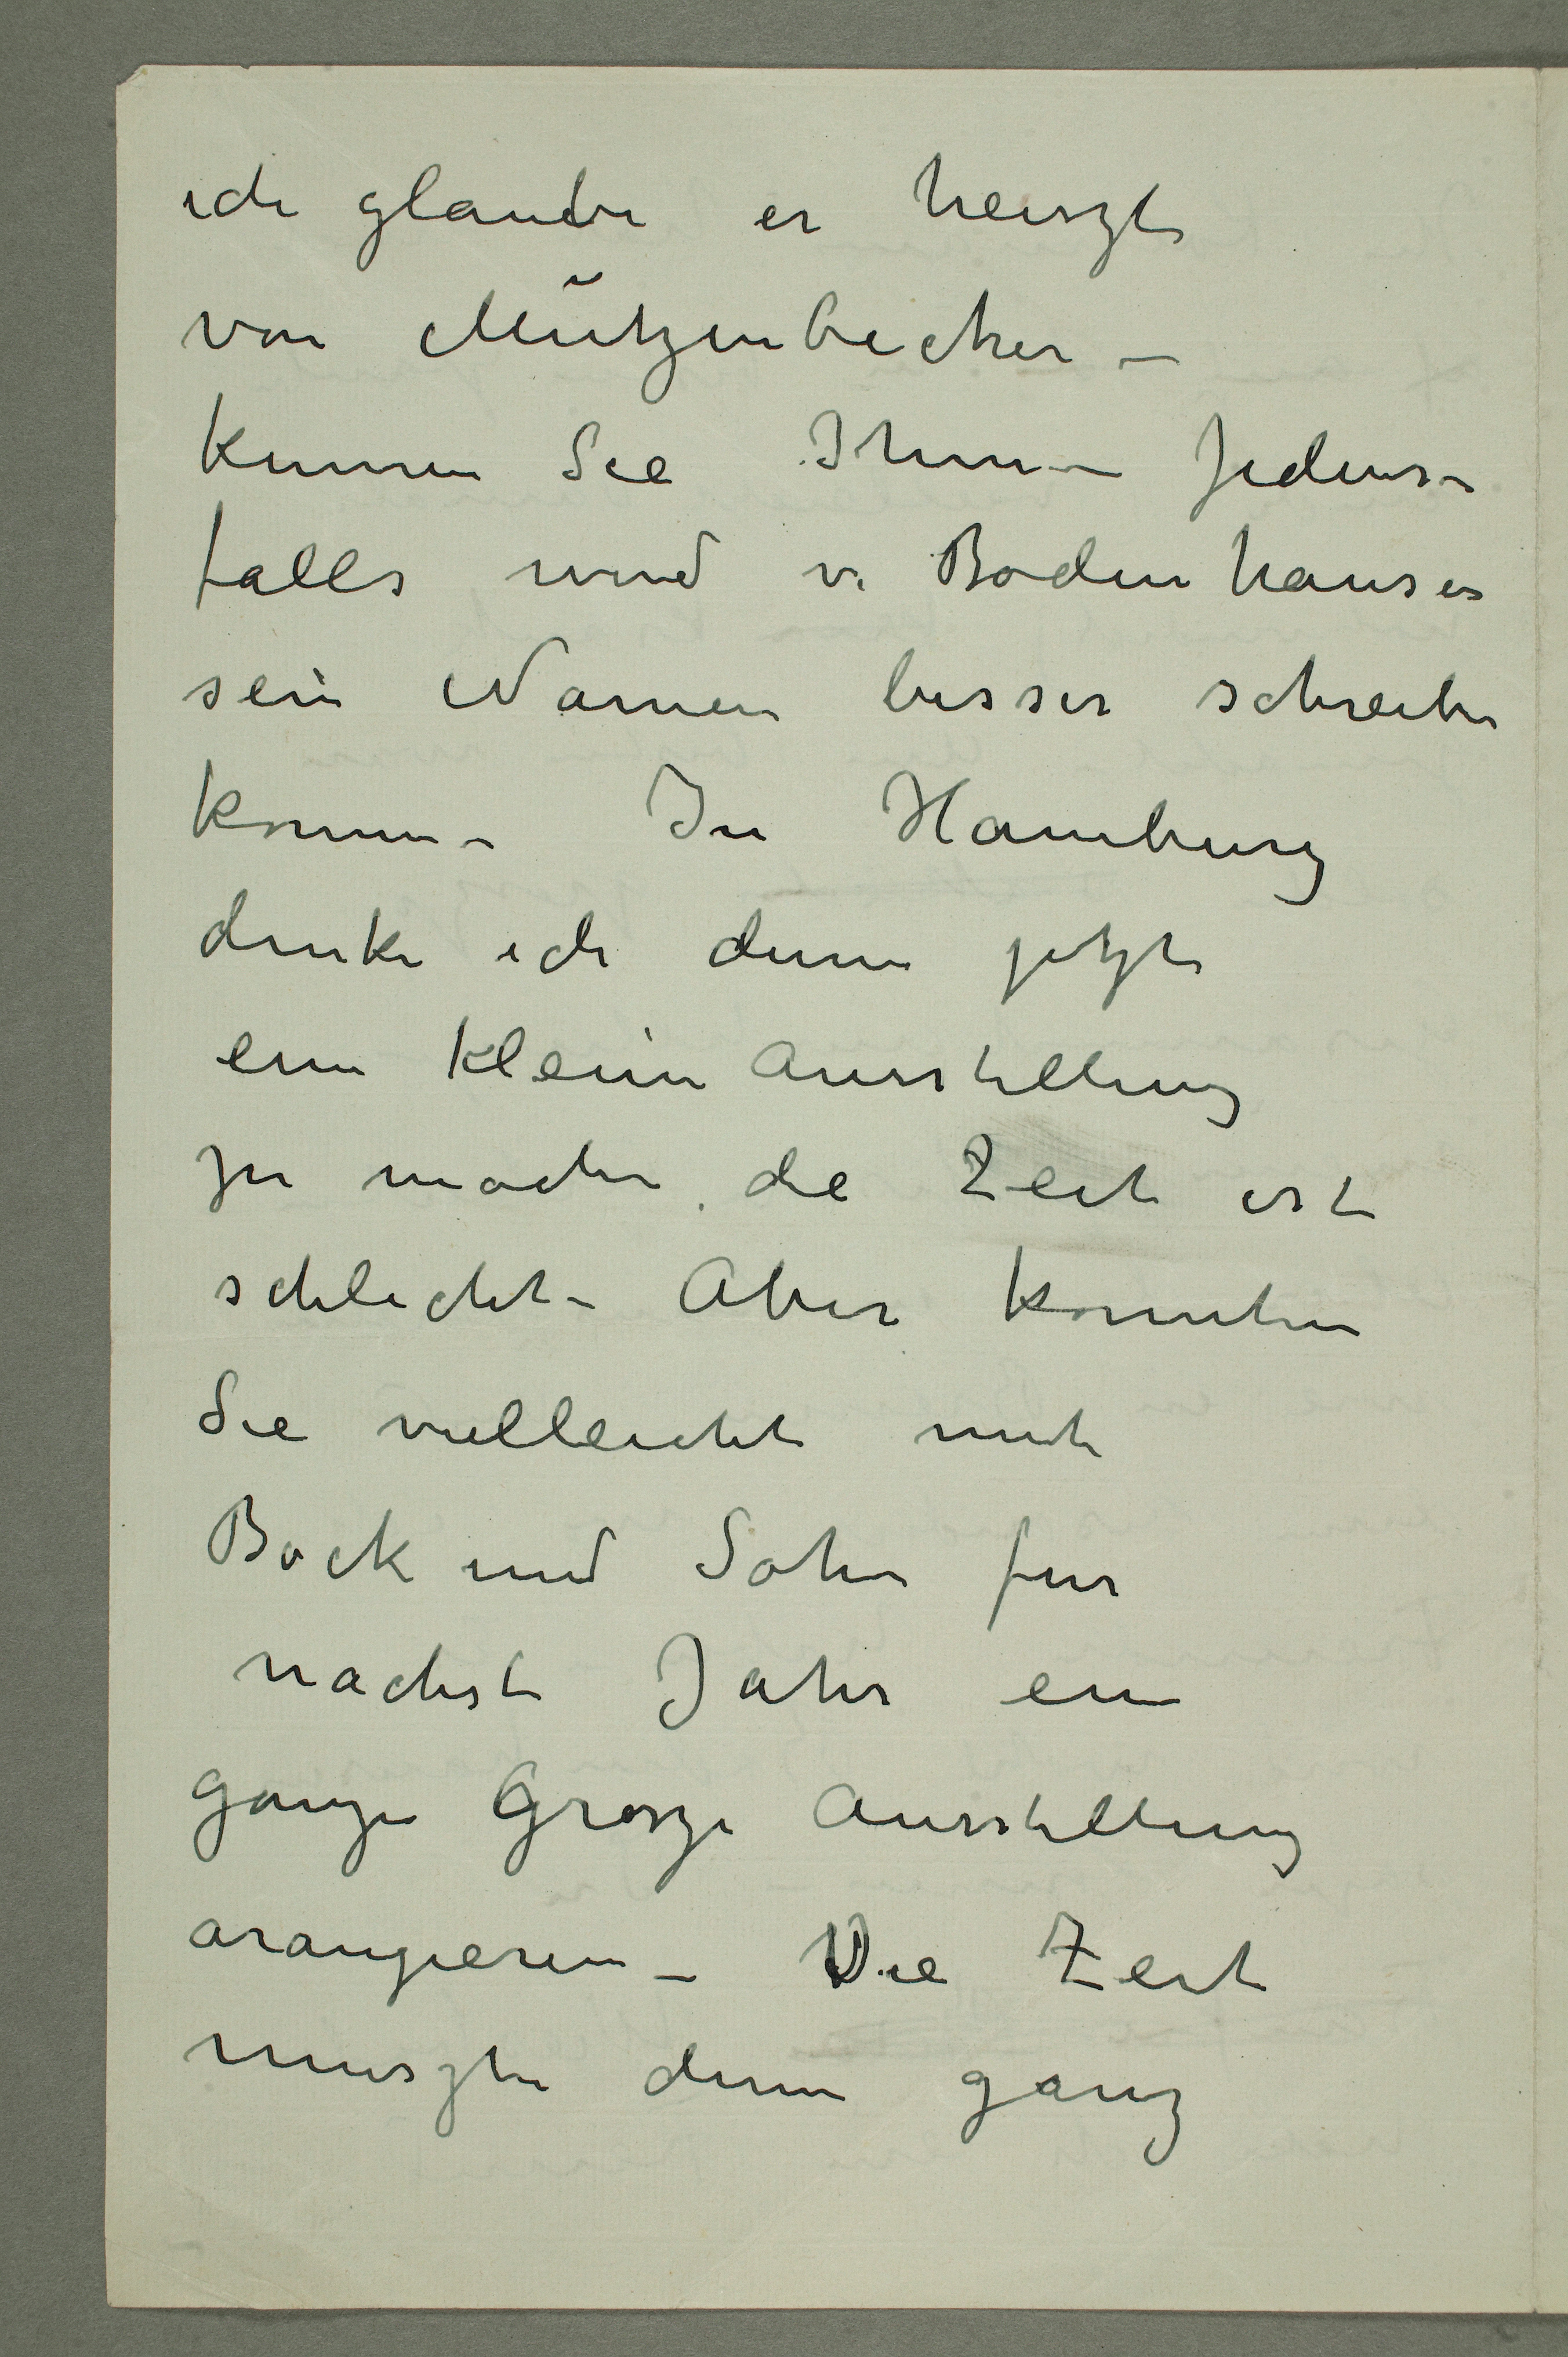 ich glaube er heiszt
von Mützenbecher –
kennen Sie Ihnn – Jedens-
falls wird v. Bodenhausen
sein Namen besser schreiben
konnen – In Hamburg
denke ich denn jetzt
eine kleine Ausstellung
zu machen. die Zeit ist
schlecht – Aber konnten
Sie vielleicht mit
Bock und Sohn fur
nachste Jahr eine
ganze Grosze Ausstellung
arangieren – Die Zeit
muszte denn ganz